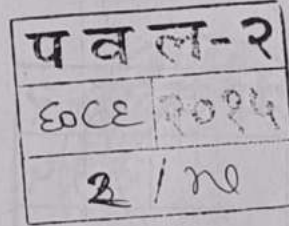 प व ल-२
६०८६ २०१५
२ / ७०